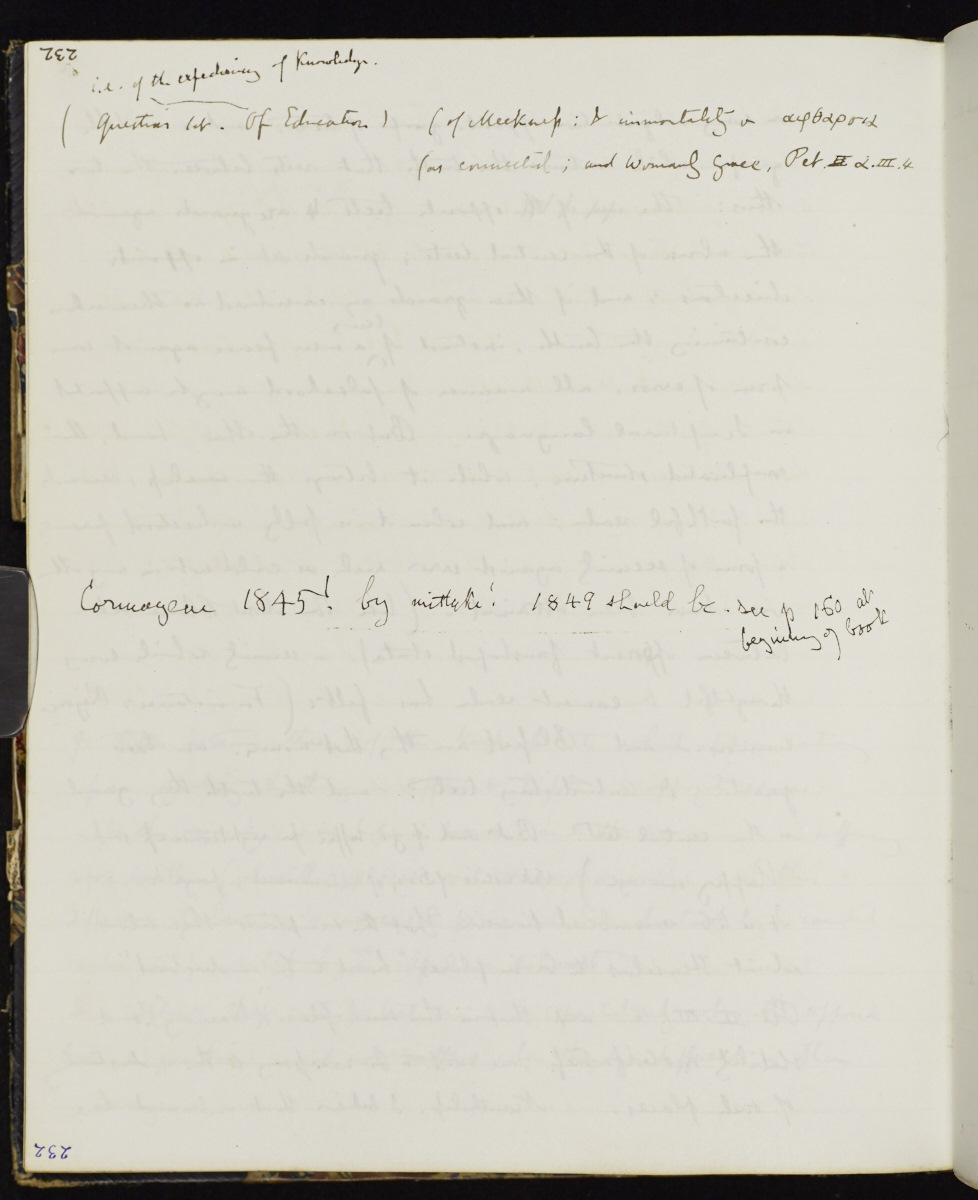 232
i.e. of the expediency of Knowledge.
( Question 1st. Of Education ) ( of Meekness: & immortality αφθαρσια
(as connected; and Womanly Grace, Pet. II α. III. 4
1845! by mistake! 1849 should be. see p 160 at
beginning of book
232